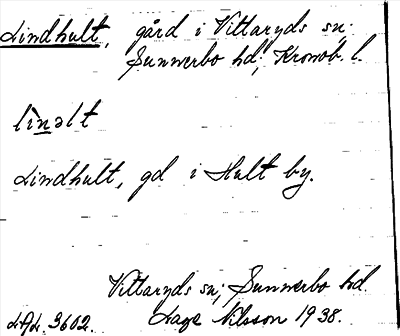 Lindhult, gård i Vittaryds sn;
Sunnerbo hd; Kronob. l.
lìnəlt
Lindhult, gd i Hult by.
Vittaryds sn; Sunnerbo hd.
L.A.L. 3602. Lage Nilsson 1938.